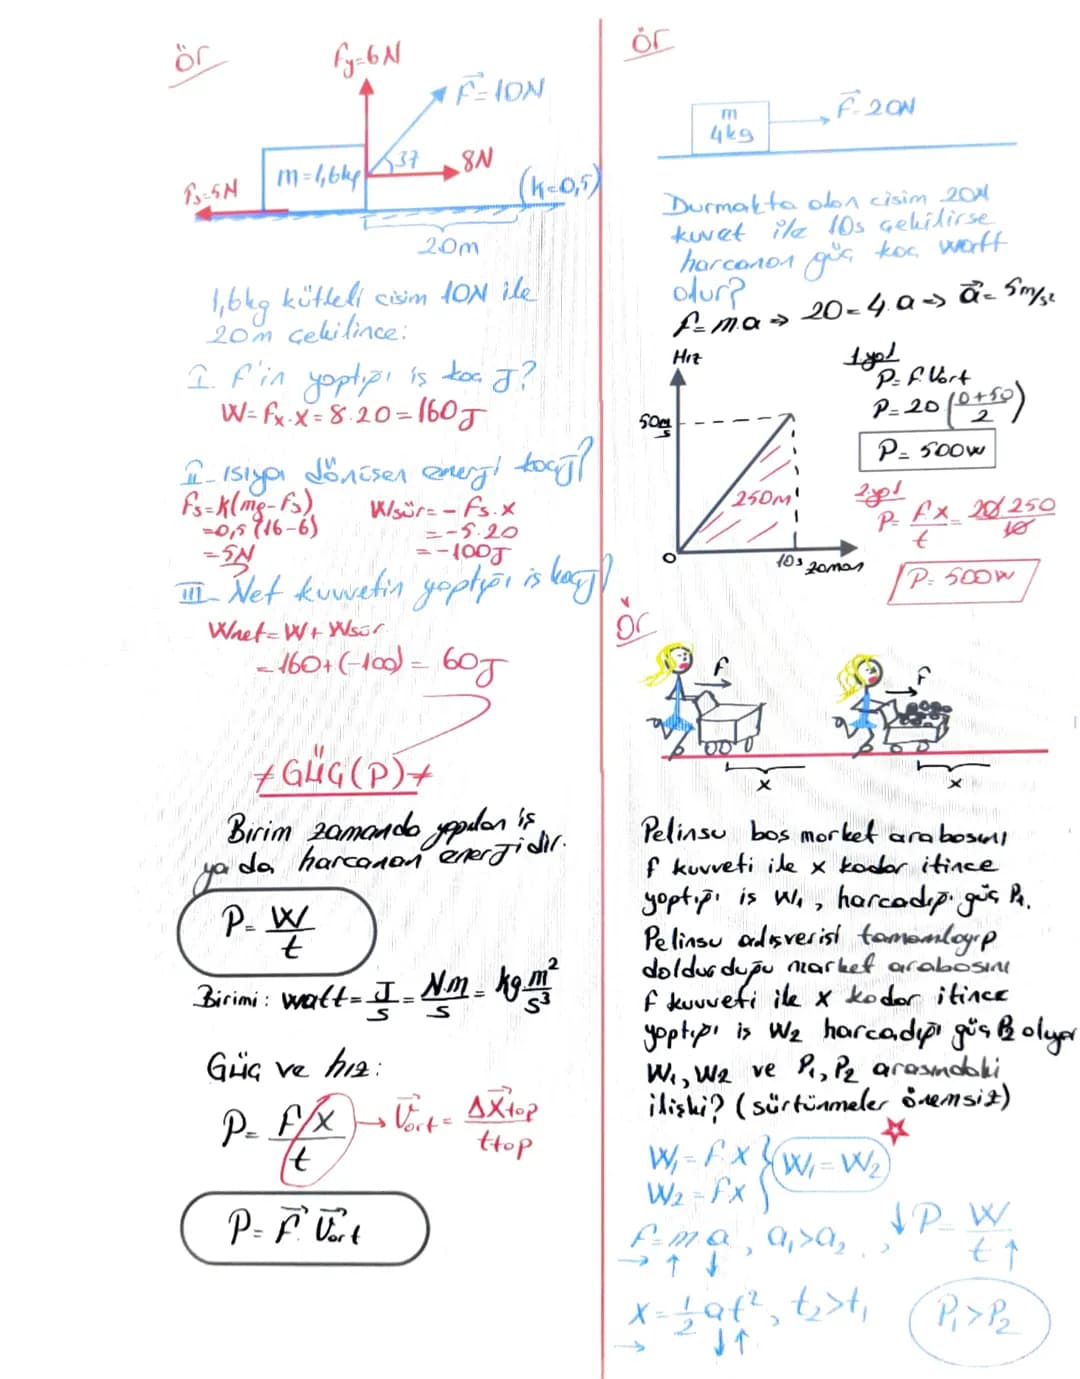 ör
Fy=6N
F=10N
37
8N
m=1,6kg
fs=5N
(k=0,5)
20m
1,6kg kütleli cisim 10N ile
20m çekilince:
I. F'in yaptığı iş kaç J?
W=Fx.x=8.20=160J
II- ısıya dönüşen enerji kaç J?
fs=k(mg-fs)
=0,5(16-6)
=5N
Wsür=-fs.x
=-5.20
=-100J
III- Net kuvvetin yaptığı iş kaç J?
Wnet=W+Wsür
=160+(-100)=60J
GÜÇ(P)
Birim zamanda yapılan iş
ya da harcanan enerjidir.
P=W/t
Birimi: watt=J/s=Nm/s=kg m²/s³
Güç ve hız:
P=Fx/t → Vort=ΔXtop/ttop
P=F Vort
ör
m
4kg
F=20N
Durmakta olan cisim 20N
kuvvet ile 10s çekilirse
harcanan güç kaç watt
olur?
f=m.a⇒20=4.a⇒a=5m/s²
Hız
50m/s
250m
0
10s zaman
1.yol
P=f.Vort
P=20(0+50/2)
P=500W
2.yol
P=fx/t=20 250/10
P=500W
ör
f
f
x
x
Pelinsu boş market arabasını
f kuvveti ile x kadar itince
yaptığı iş W1, harcadığı güç P1.
Pelinsu alışverişi tamamlayıp
doldurduğu market arabasını
f kuvveti ile x kadar itince
yaptığı iş W2 harcadığı güç P2 oluyor
W1,W2 ve P1,P2 arasındaki
ilişki? (sürtünmeler önemsiz)
W1=f.x
W2=fx
W1=W2
f=m a, a1>a2, ↓P=W/t↑
→ ↑ ↓
x=1/2at², t2>t1
→ ↓↑
P1>P2